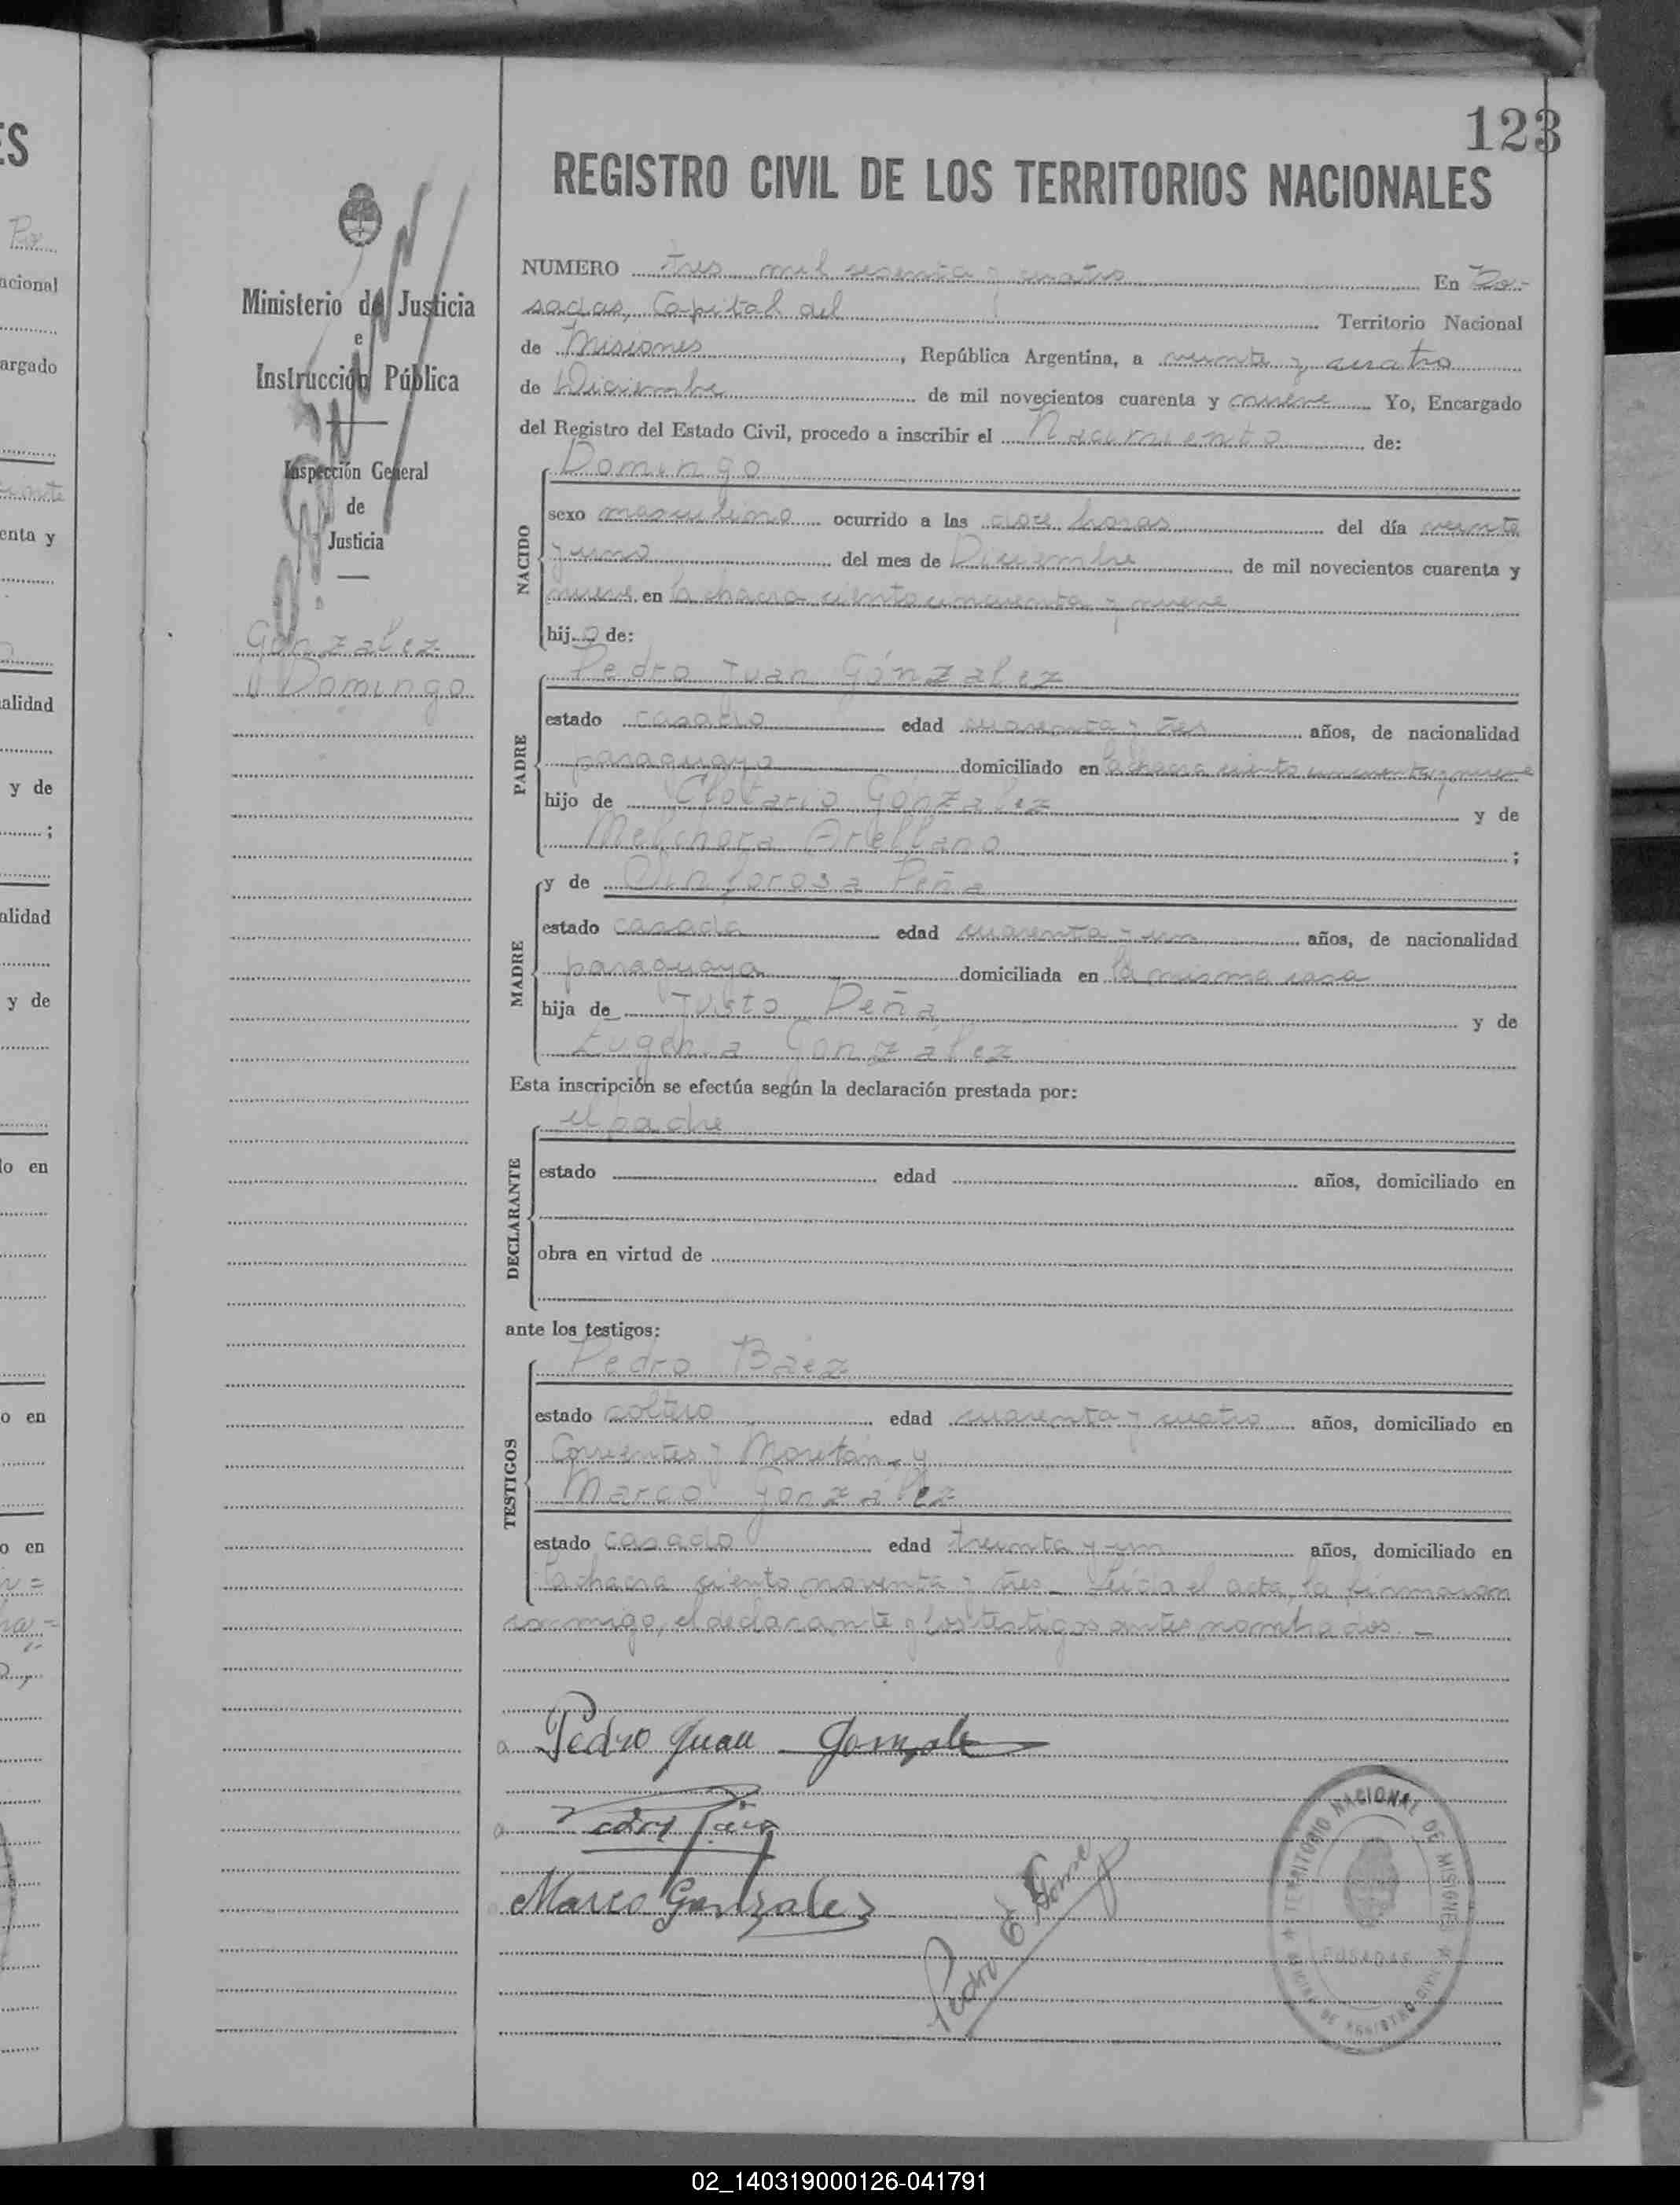 123
REGISTRO CIVIL DE LOS TERRITORIOS NACIONALES
Ministerio de Justicia
e
Instrucción Pública
Inspección General
de
Justicia
Gonzalez
Domingo
NUMERO tres mil sesenta y cuatro En Po-
sadas, Capital del Territorio Nacional
de Misiones, República Argentina, a veinte y cuatro
de Diciembre de mil novecientos cuarenta y nueve Yo, Encargado
del Registro del Estado Civil, procedo a inscribir el Nacimiento de:
NACIDO
Domingo
sexo masculino ocurrido a las doce horas del día veinte
y uno del mes de Diciembre de mil novecientos cuarenta y
nueve en la chacra ciento cincuenta y nueve
hijo de:
PADRE
Pedro Juan Gónzalez
estado casado edad cuarenta y tres años, de nacionalidad
paraguayo domiciliado en la chacra ciento cincuenta y nueve
hijo de Clotario Gonzalez y de
Melchora Arellano ;
MADRE
y de Sinforosa Peña
estado casada edad cuarenta y un años, de nacionalidad
paraguaya domiciliada en la misma casa
hija de Justo Peña y de
Eugenia Gonzalez
Esta inscripción se efectúa según la declaración prestada por:
DECLARANTE
el padre
estado edad años, domiciliado en
obra en virtud de
ante los testigos:
TESTIGOS
Pedro Báez
estado soltero edad cuarenta y cuatro años, domiciliado en
Corrientes y Moritán y
Marco Gonzalez
estado casado edad treinta y un años, domiciliado en
la chacra ciento noventa y tres - Leída el acta, la firmaron
conmigo, el declarante y los testigos antes nombrados. -
Pedro Juan Gonzale
Marco Gonzalez
TERRITORIO NACIONAL DE MISIONES
POSADAS
02_140319000126-041791